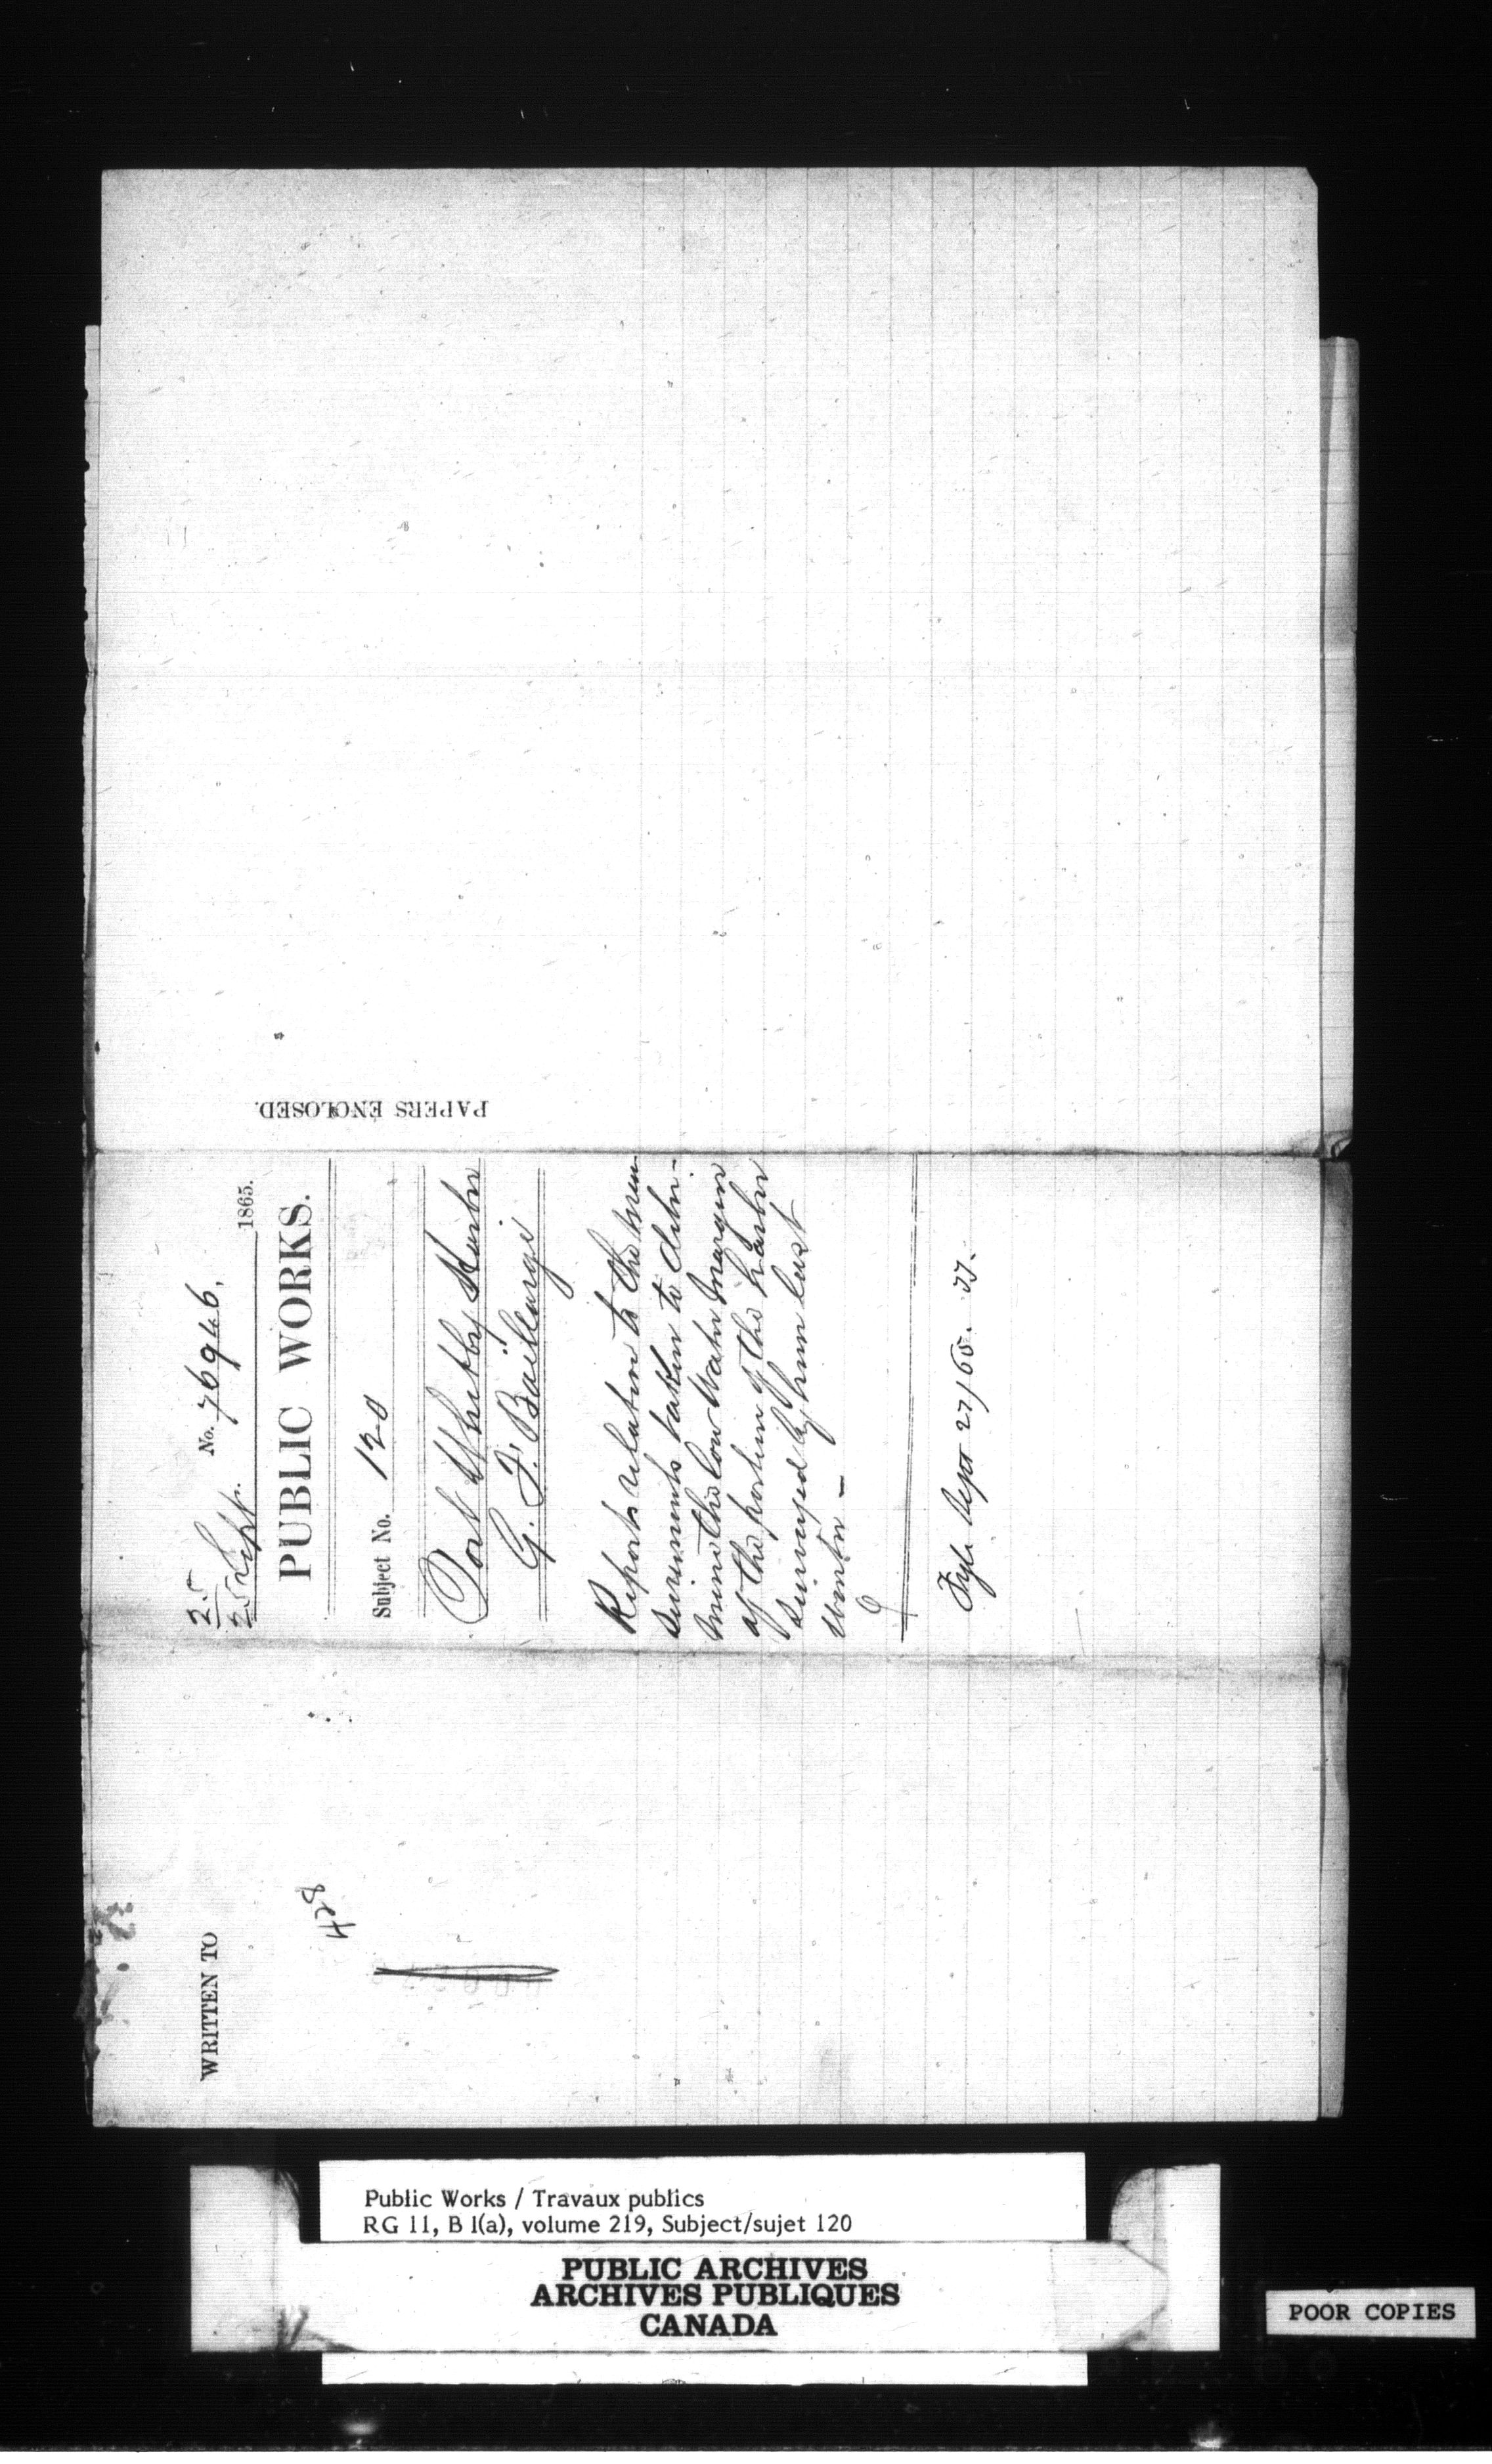 PAPERS ENCLOSED.
25
25 Sept. No. 76946, 1865.
PUBLIC WORKS.
Subject No. 120
Port Whitby Harbr
G. F. Baillairgé
Reports relation to the mea-
surements taken to deter-
mine the low water margin
of the portion of the harbor
surveyed by him last
Winter –
Fyle Sept 27/65.
WRITTEN TO
428
Public Works / Travaux publics
RG 11, B 1(a), volume 219, Subject/sujet 120
PUBLIC ARCHIVES
ARCHIVES PUBLIQUES
CANADA
POOR COPIES